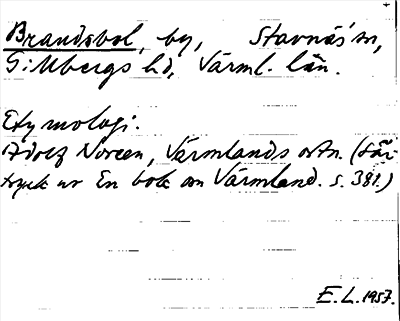 Brandsbol, by, Stavnäs sn,
Gillbergs hd, Värml. län.
Etymologi.
Adolf Noreen, Värmlands ortn. (sär-
tryck ur En bok om Värmland. s. 381.)
E. L. 1957.